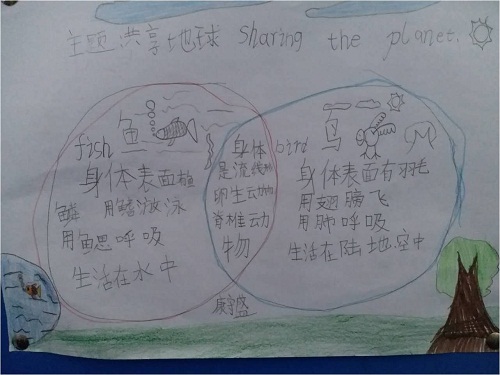 主题:共享地球 Sharing the planet.
fish 鱼
身体表面有
鳞 用鳍游泳
用鳃呼吸
生活在水中
身体
是流线形
卵生动物
脊椎动
物
bird 鸟
身体表面有羽毛
用翅膀飞
用肺呼吸
生活在陆地空中
康宇盛